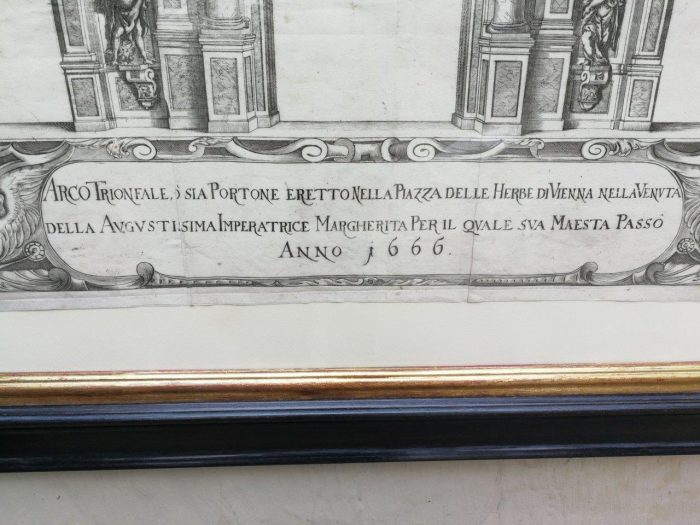 ARCO TRIONFALE, ò SIA PORTONE ERETTO NELLA PIAZZA DELLE HERBE DI VIENNA NELLA VENUTA
DELLA AVGVSTISSIMA IMPERATRICE MARGHERITA PER IL QVALE SVA MAESTA PASSÒ
ANNO 1666.